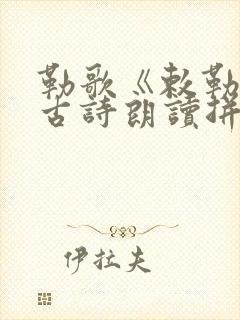 勒歌《敕勒
古詩朗讀拼
伊拉夫